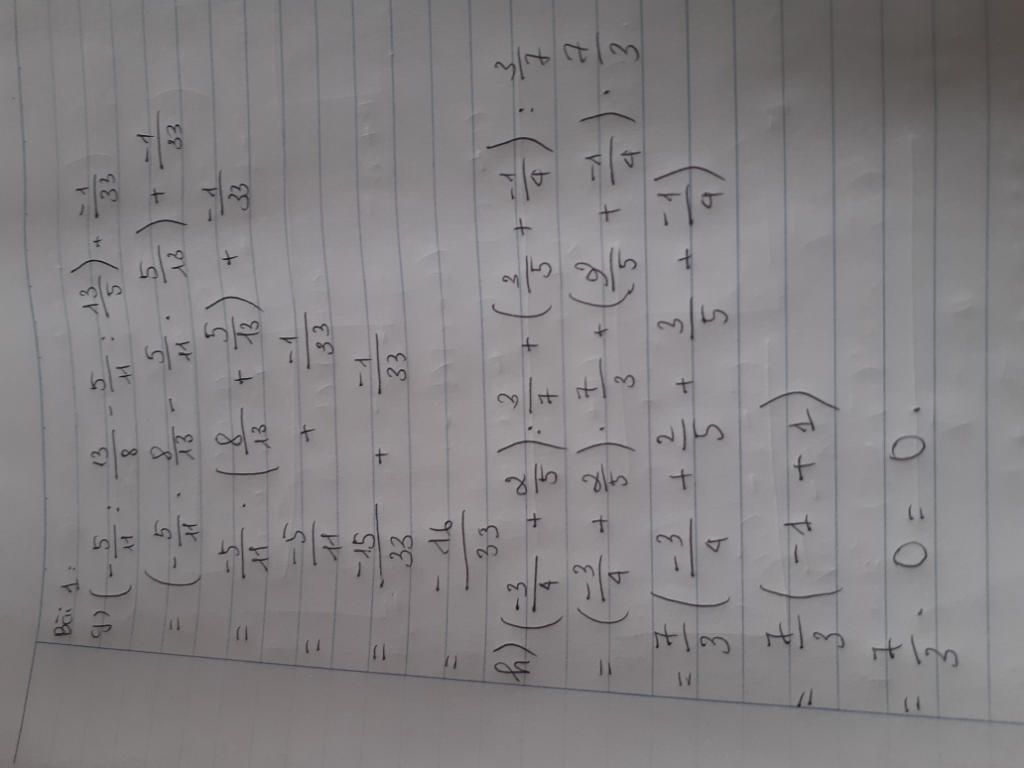 Bài 1:
g) (-5/11 : 13/8 - 5/11 : 13/5) + -1/33
= (-5/11 . 8/13 - 5/11 . 5/13) + -1/33
= -5/11 . (8/13 + 5/13) + -1/33
= -5/11 + -1/33
= -15/33 + -1/33
= -16/33
h) (-3/4 + 2/5) : 3/7 + (3/5 + -1/4) : 3/7
= (-3/4 + 2/5) . 7/3 + (2/5 + -1/4) . 7/3
= 7/3 (-3/4 + 2/5 + 3/5 + -1/4)
= 7/3 (-1 + 1)
= 7/3 . 0 = 0.